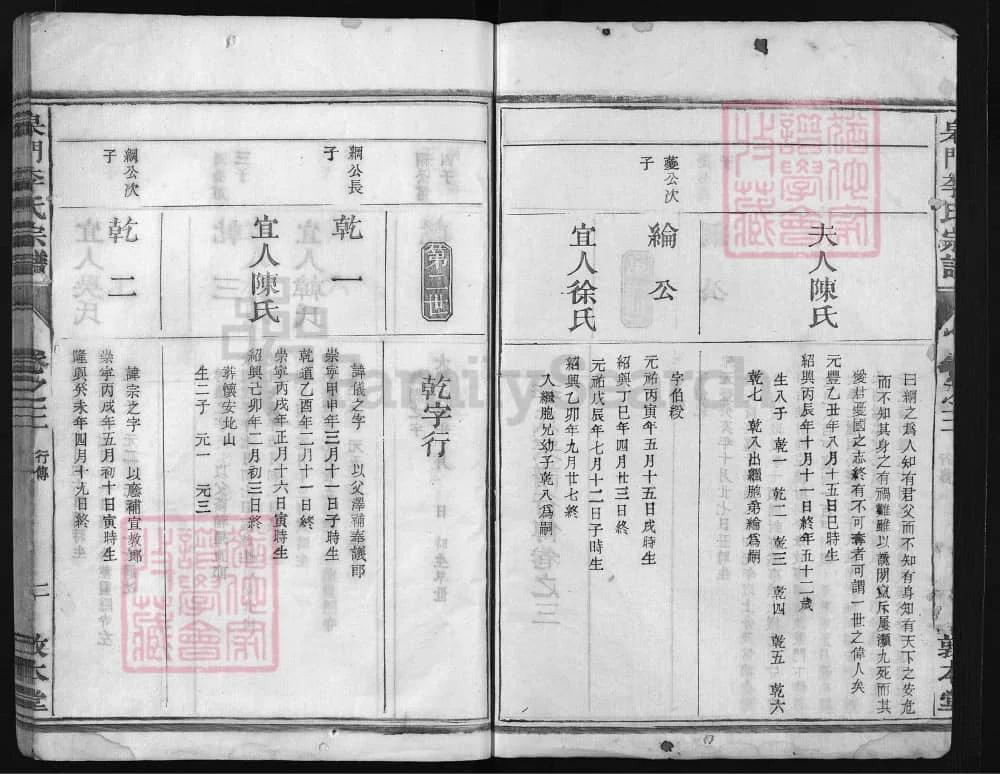 泉門李氏宗譜
卷之三
行傳
敦本堂
曰綱之爲人知有君父而不知有身知有天下之安危
而不知其身之有禍難雖以讒間竄斥屢瀕九死而其
愛君憂國之志終有不可奪者可謂一世之偉人矣
夫人陳氏
元豐乙丑年八月十五日巳時生
紹興丙辰年十月十一日終年五十二歲
生八子 乾一 乾二 乾三 乾四 乾五 乾六
乾七 乾八出繼胞弟綸爲嗣
夔公次
子
綸公
字伯稷
元祐丙寅年五月十五日戌時生
紹興丁巳年四月廿三日終
宜人徐氏
元祐戊辰年七月十二日子時生
紹興乙卯年九月廿七終
入繼胞兄幼子乾八爲嗣
第二世
乾字行
綱公長
子
乾一
諱儀之字 以父澤補奉議郎
崇寧甲申年三月十一日子時生
乾道乙酉年二月十一日終
宜人陳氏
崇寧丙戌年正月十六日寅時生
紹興己卯年二月初三日終
葬懷安北山
生二子 元一 元三
綱公次
子
乾二
諱宗之字 以廕補宣教郎
崇寧丙戌年五月初十日寅時生
隆興癸未年四月十九日終
泉門李氏宗譜
卷之三
行傳
二
敦本堂
FamilySearch